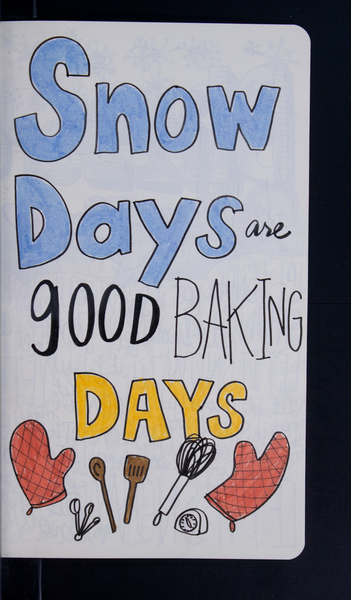 Snow
Days are
good BAKING
DAYS